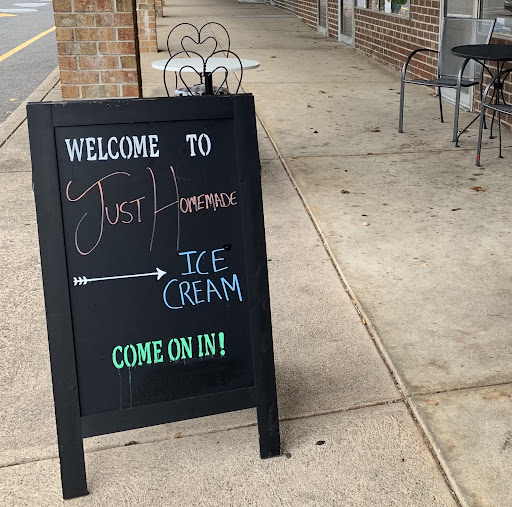 WELCOME TO
JUST HOMEMADE
ICE
CREAM
COME ON IN!